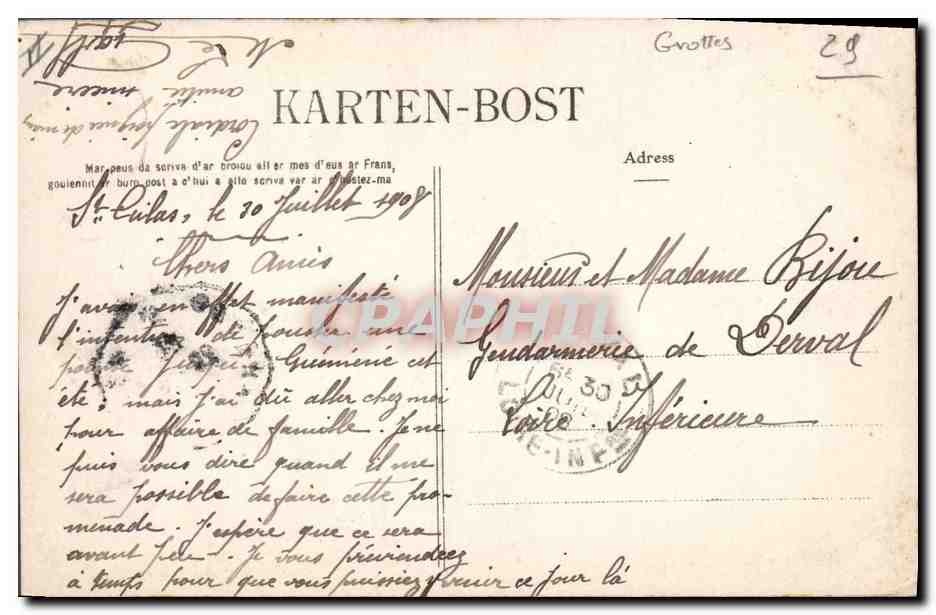 Grottes
29
KARTEN-BOST
Mar peus da scriva d'ar broiou all er mes d'eus ar Frans,
goulennit er buro post a c'hui a ello scriva var ar c'hostez-ma
Adress
le 30 Juillet 1908
Chers Amis
J'avais en effet manifesté
l'intention de pousser une
jusqu'à Guéméné cet
été, mais j'ai dû aller chez moi
pour affaire de famille. Je ne
puis vous dire quand il me
sera possible de faire cette pro-
menade. J'espère que ce sera
avant peu. Je vous préviendrez
à temps pour que vous puissiez venir ce jour là
Cordiale poignée de main
amitié sincère
Monsieur et Madame Bijou
Gendarmerie de Derval
Loire-Inférieure
30
CPARAMA